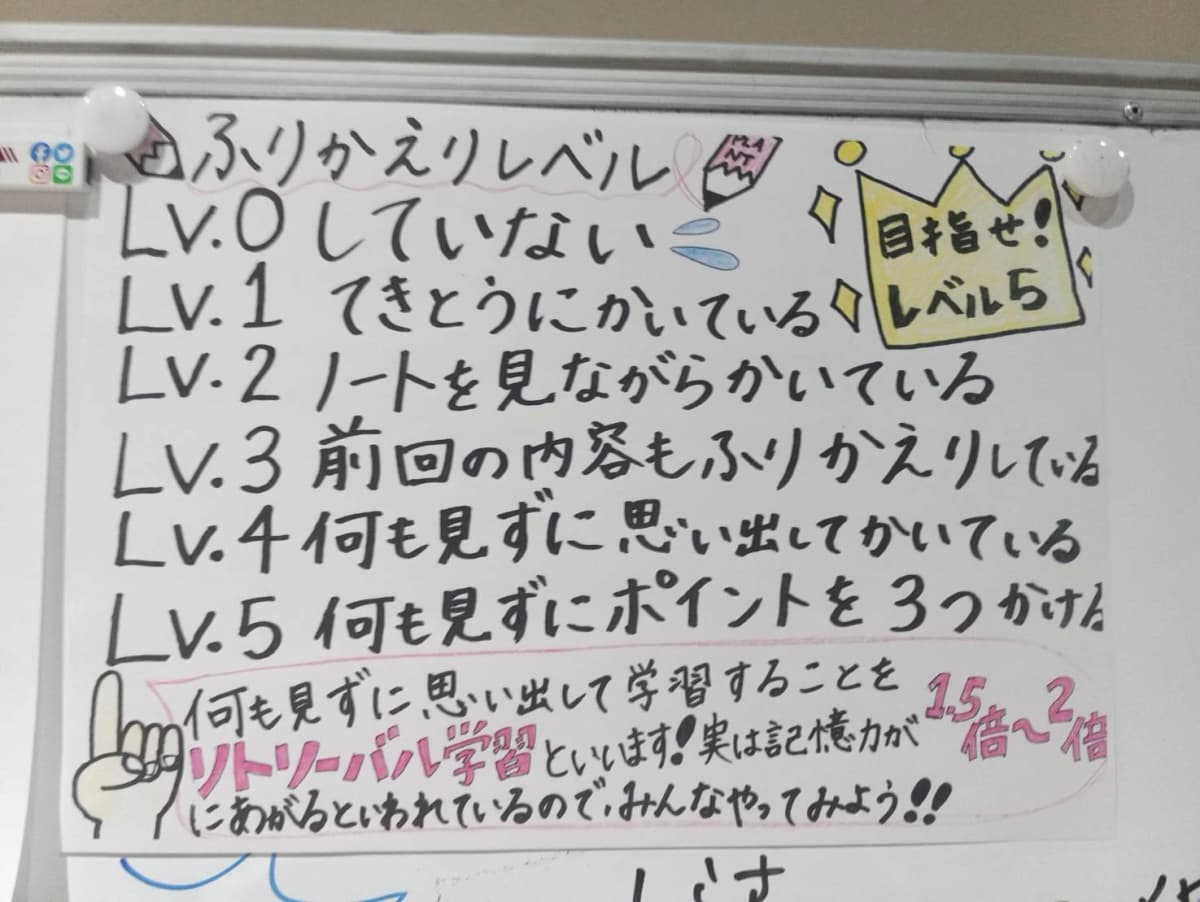 ふりかえりレベル
PLANT
Lv.0 していない
Lv.1 てきとうにかいている
目指せ!
レベル5
Lv.2 ノートを見ながらかいている
Lv.3 前回の内容もふりかえりしている
Lv.4 何も見ずに思い出してかいている
Lv.5 何も見ずにポイントを3つかける
何も見ずに思い出して学習することを
リトリーバル学習といいます!実は記憶力が1.5倍~2倍
にあがるといわれているので、みんなやってみよう!!